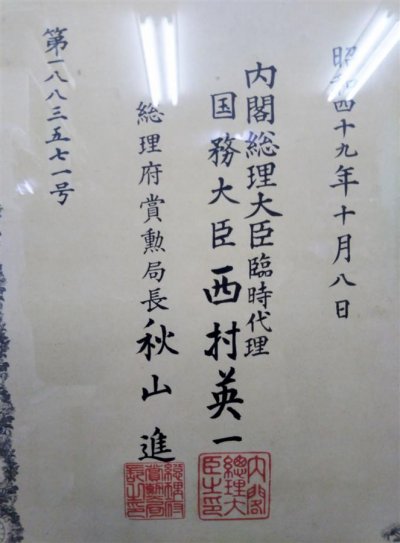 昭和四十九年十月八日
内閣総理大臣臨時代理
国務大臣 西村英一
総理府賞勲局長 秋山進
第一八八三五七一号
内閣
総理大
臣之印
総理府
賞勲局
長之印